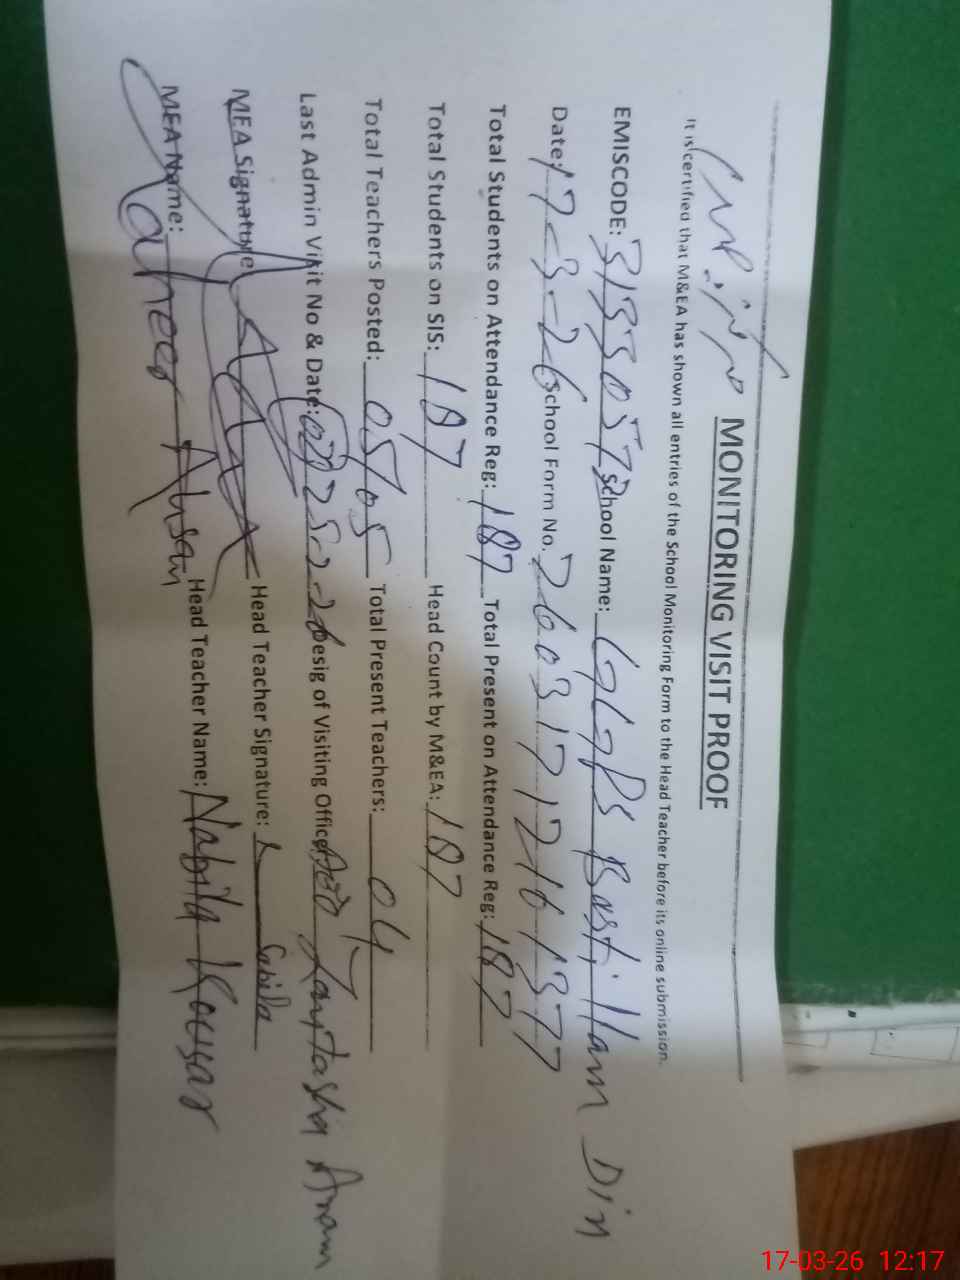 MONITORING VISIT PROOF
It is certified that M&EA has shown all entries of the School Monitoring Form to the Head Teacher before its online submission.
EMISCODE: 31330573 School Name: GGPS Basti Ilam Din
Date: 17-3-26 School Form No. 26031712161377
Total Students on Attendance Reg: 187 Total Present on Attendance Reg: 187
Total Students on SIS: 187 Head Count by M&EA: 187
Total Teachers Posted: 05/05 Total Present Teachers: 04
Last Admin Visit No & Date: 02 25-2-26 Desig of Visiting Officer: Zartasha Anam
MEA Signature: Head Teacher Signature:
MEA Name: Ahsan Head Teacher Name: Nabila Kousar
17-03-26 12:17